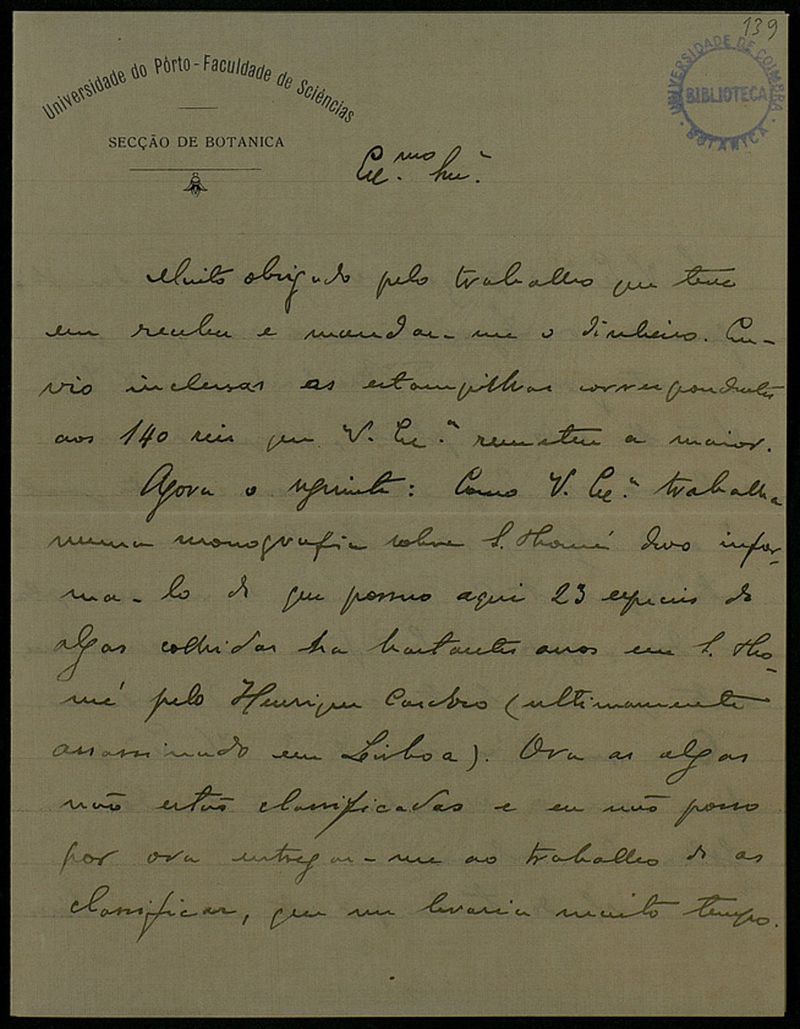 139
Universidade do Pôrto - Faculdade de Sciências
SECÇÃO DE BOTANICA
UNIVERSIDADE DE COIMBRA
BIBLIOTECA
BOTANICA
Ex.mo Snr.
Muito obrigado pelo trabalho que teve
em receber e mandar-me o dinheiro. En-
vio inclusas as estampilhas correspondentes
aos 140 reis que V. Ex.a remeteu a maior.
Agora o seguinte: Como V. Ex.a trabalha
numa monografia sobre S. Thomé devo infor-
ma-lo de que possuo aqui 23 especies de
algas colhidas ha bastantes anos em S. Tho-
mé pelo Henrique Cardoso (ultimamente
assassinado em Lisboa). Ora as algas
não estão classificadas e eu não posso
por ora entregar-me ao trabalho de as
classificar, que me levaria muito tempo.